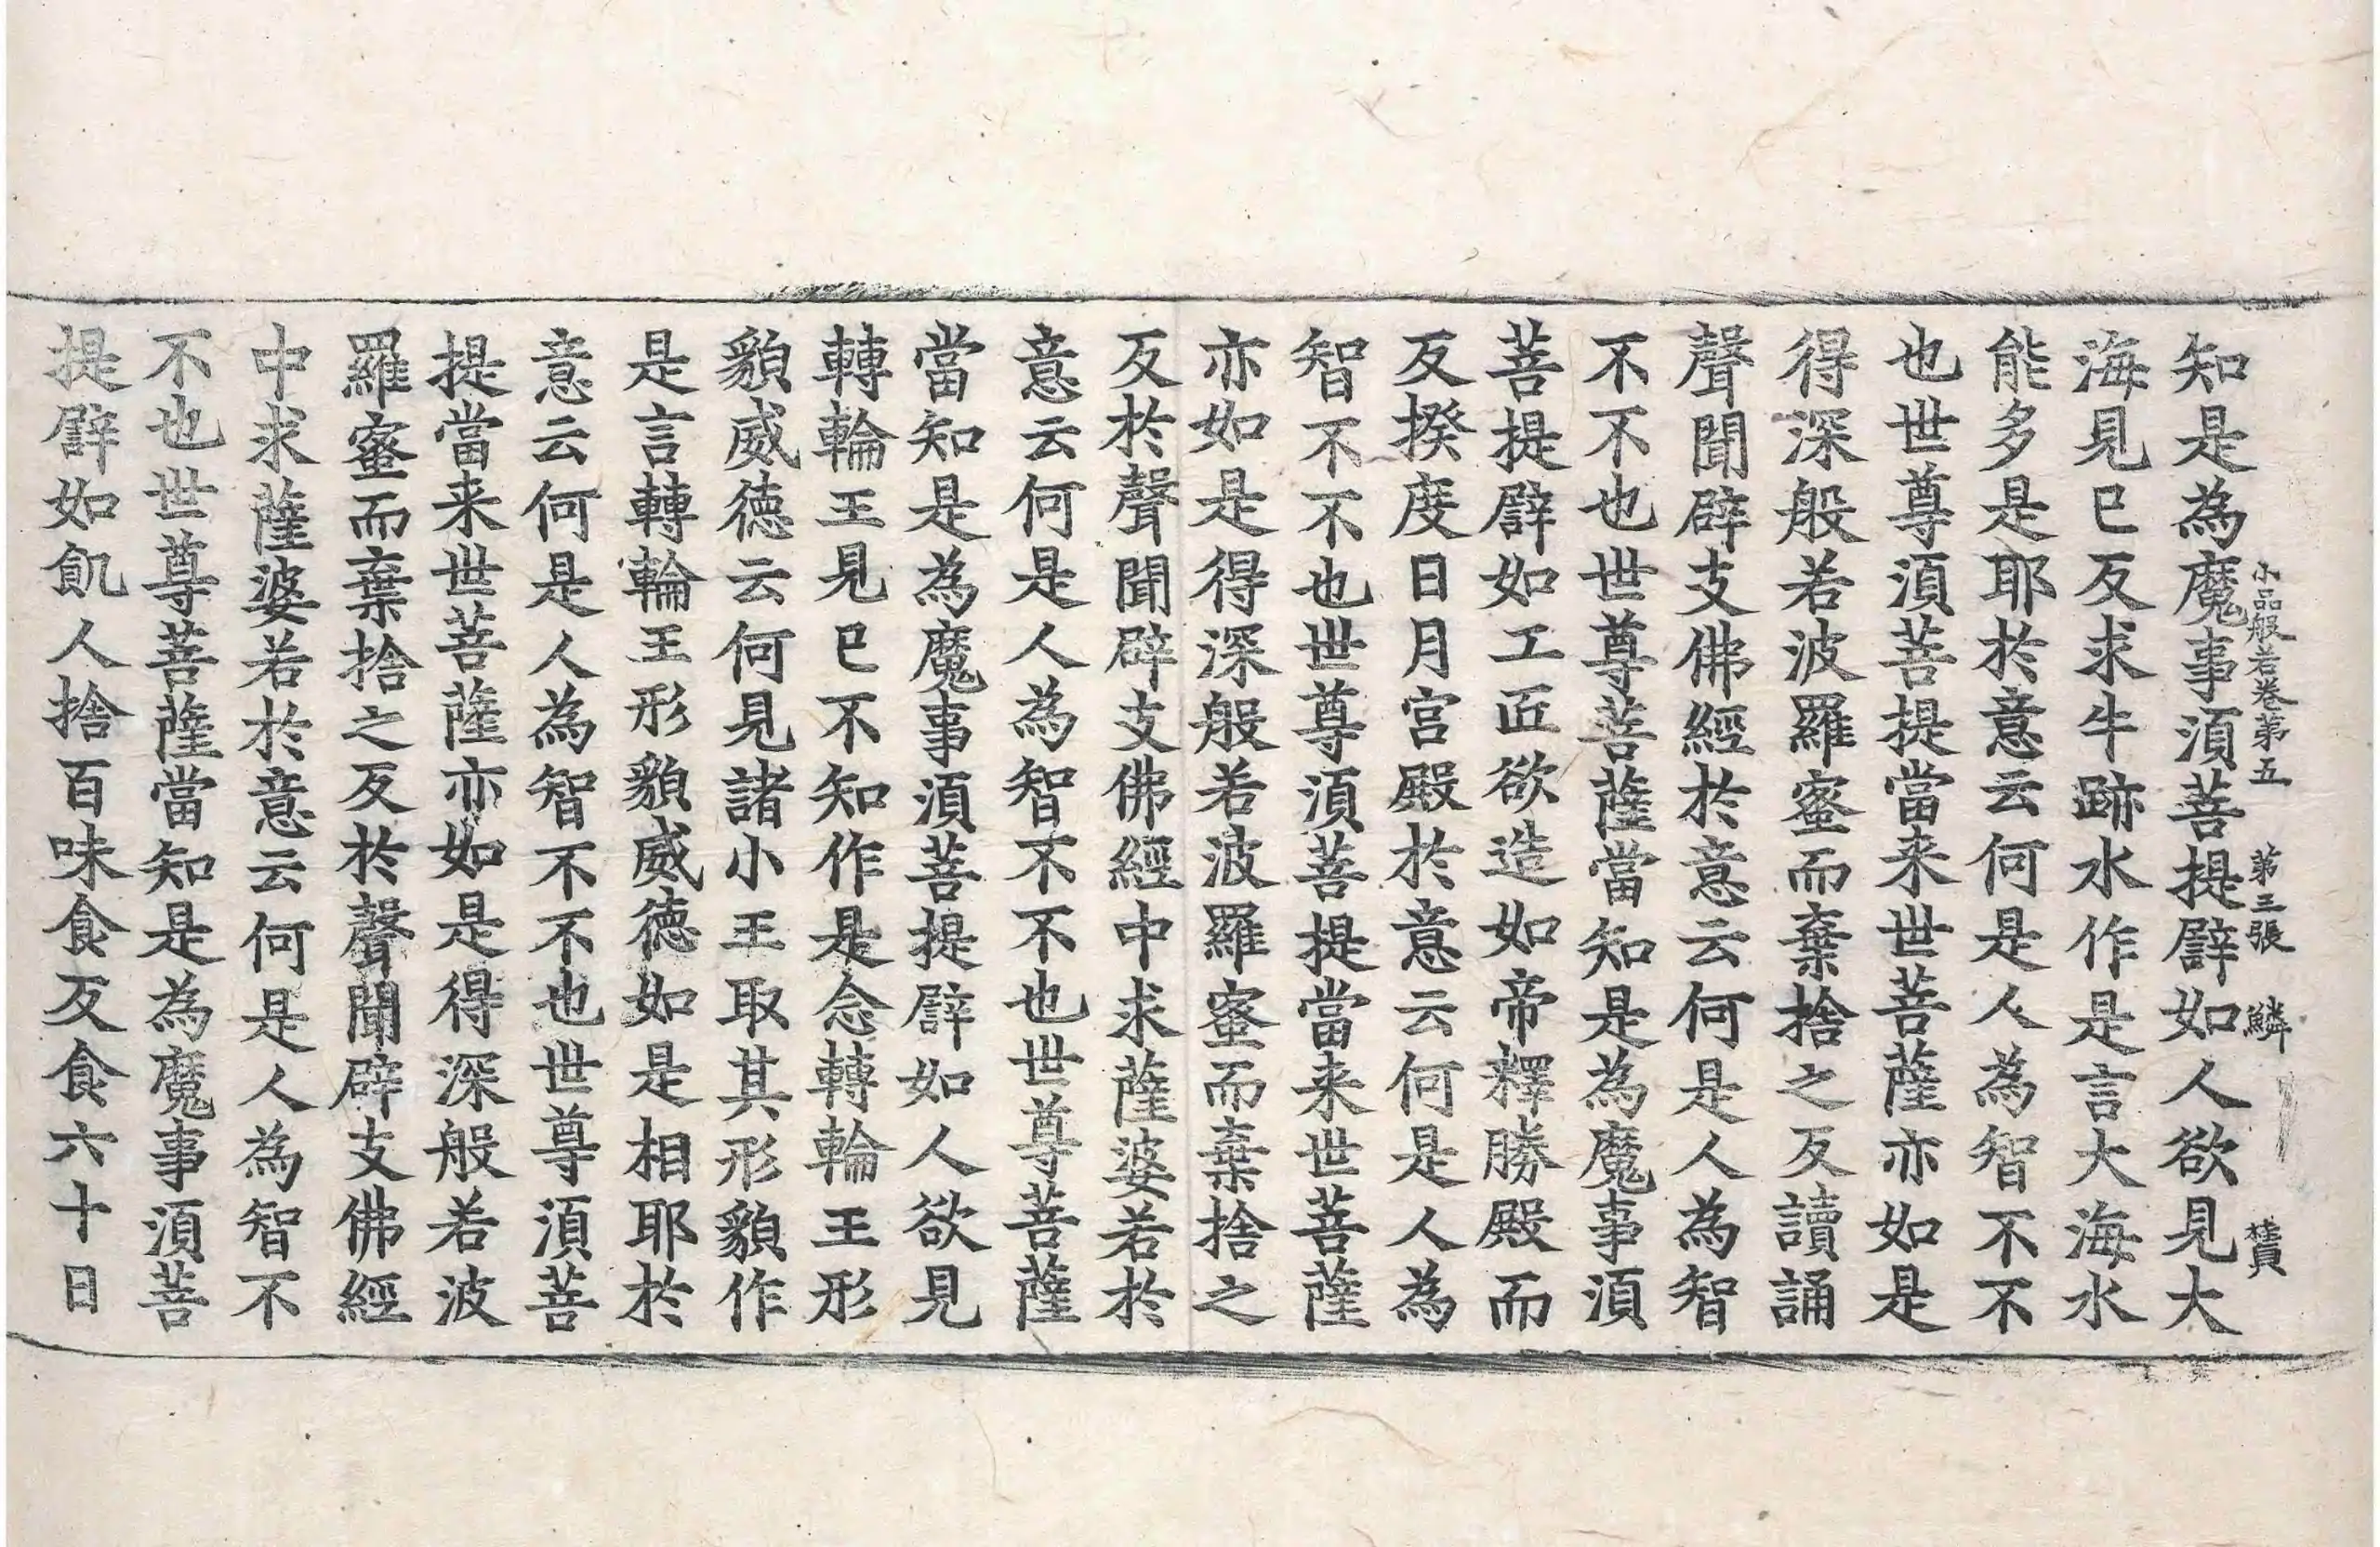 小品般若卷第五 第三張 鱗
知是為魔事須菩提譬如人欲見大
海見已反求牛跡水作是言大海水
能多是耶於意云何是人為智不不
也世尊須菩提當来世菩薩亦如是
得深般若波羅蜜而棄捨之反讀誦
聲聞辟支佛經於意云何是人為智
不不也世尊菩薩當知是為魔事須
菩提譬如工匠欲造如帝釋勝殿而
反揆度日月宮殿於意云何是人為
智不不也世尊須菩提當来世菩薩
亦如是得深般若波羅蜜而棄捨之
反於聲聞辟支佛經中求薩婆若於
意云何是人為智不不也世尊菩薩
當知是為魔事須菩提譬如人欲見
轉輪王見已不知作是念轉輪王形
貌威徳云何見諸小王取其形貌作
是言轉輪王形貌威徳如是相耶於
意云何是人為智不不也世尊須菩
提當来世菩薩亦如是得深般若波
羅蜜而棄捨之反於聲聞辟支佛經
中求薩婆若於意云何是人為智不
不也世尊菩薩當知是為魔事須菩
提譬如飢人捨百味食反食六十日